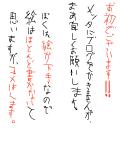 お初でございます!!!
メッタにブログをかきませんが、
まあ宜しくお願いします。
ぼくは、絵が下手なので
絵はほとんど書かないと
思いますが、ユメはでます。